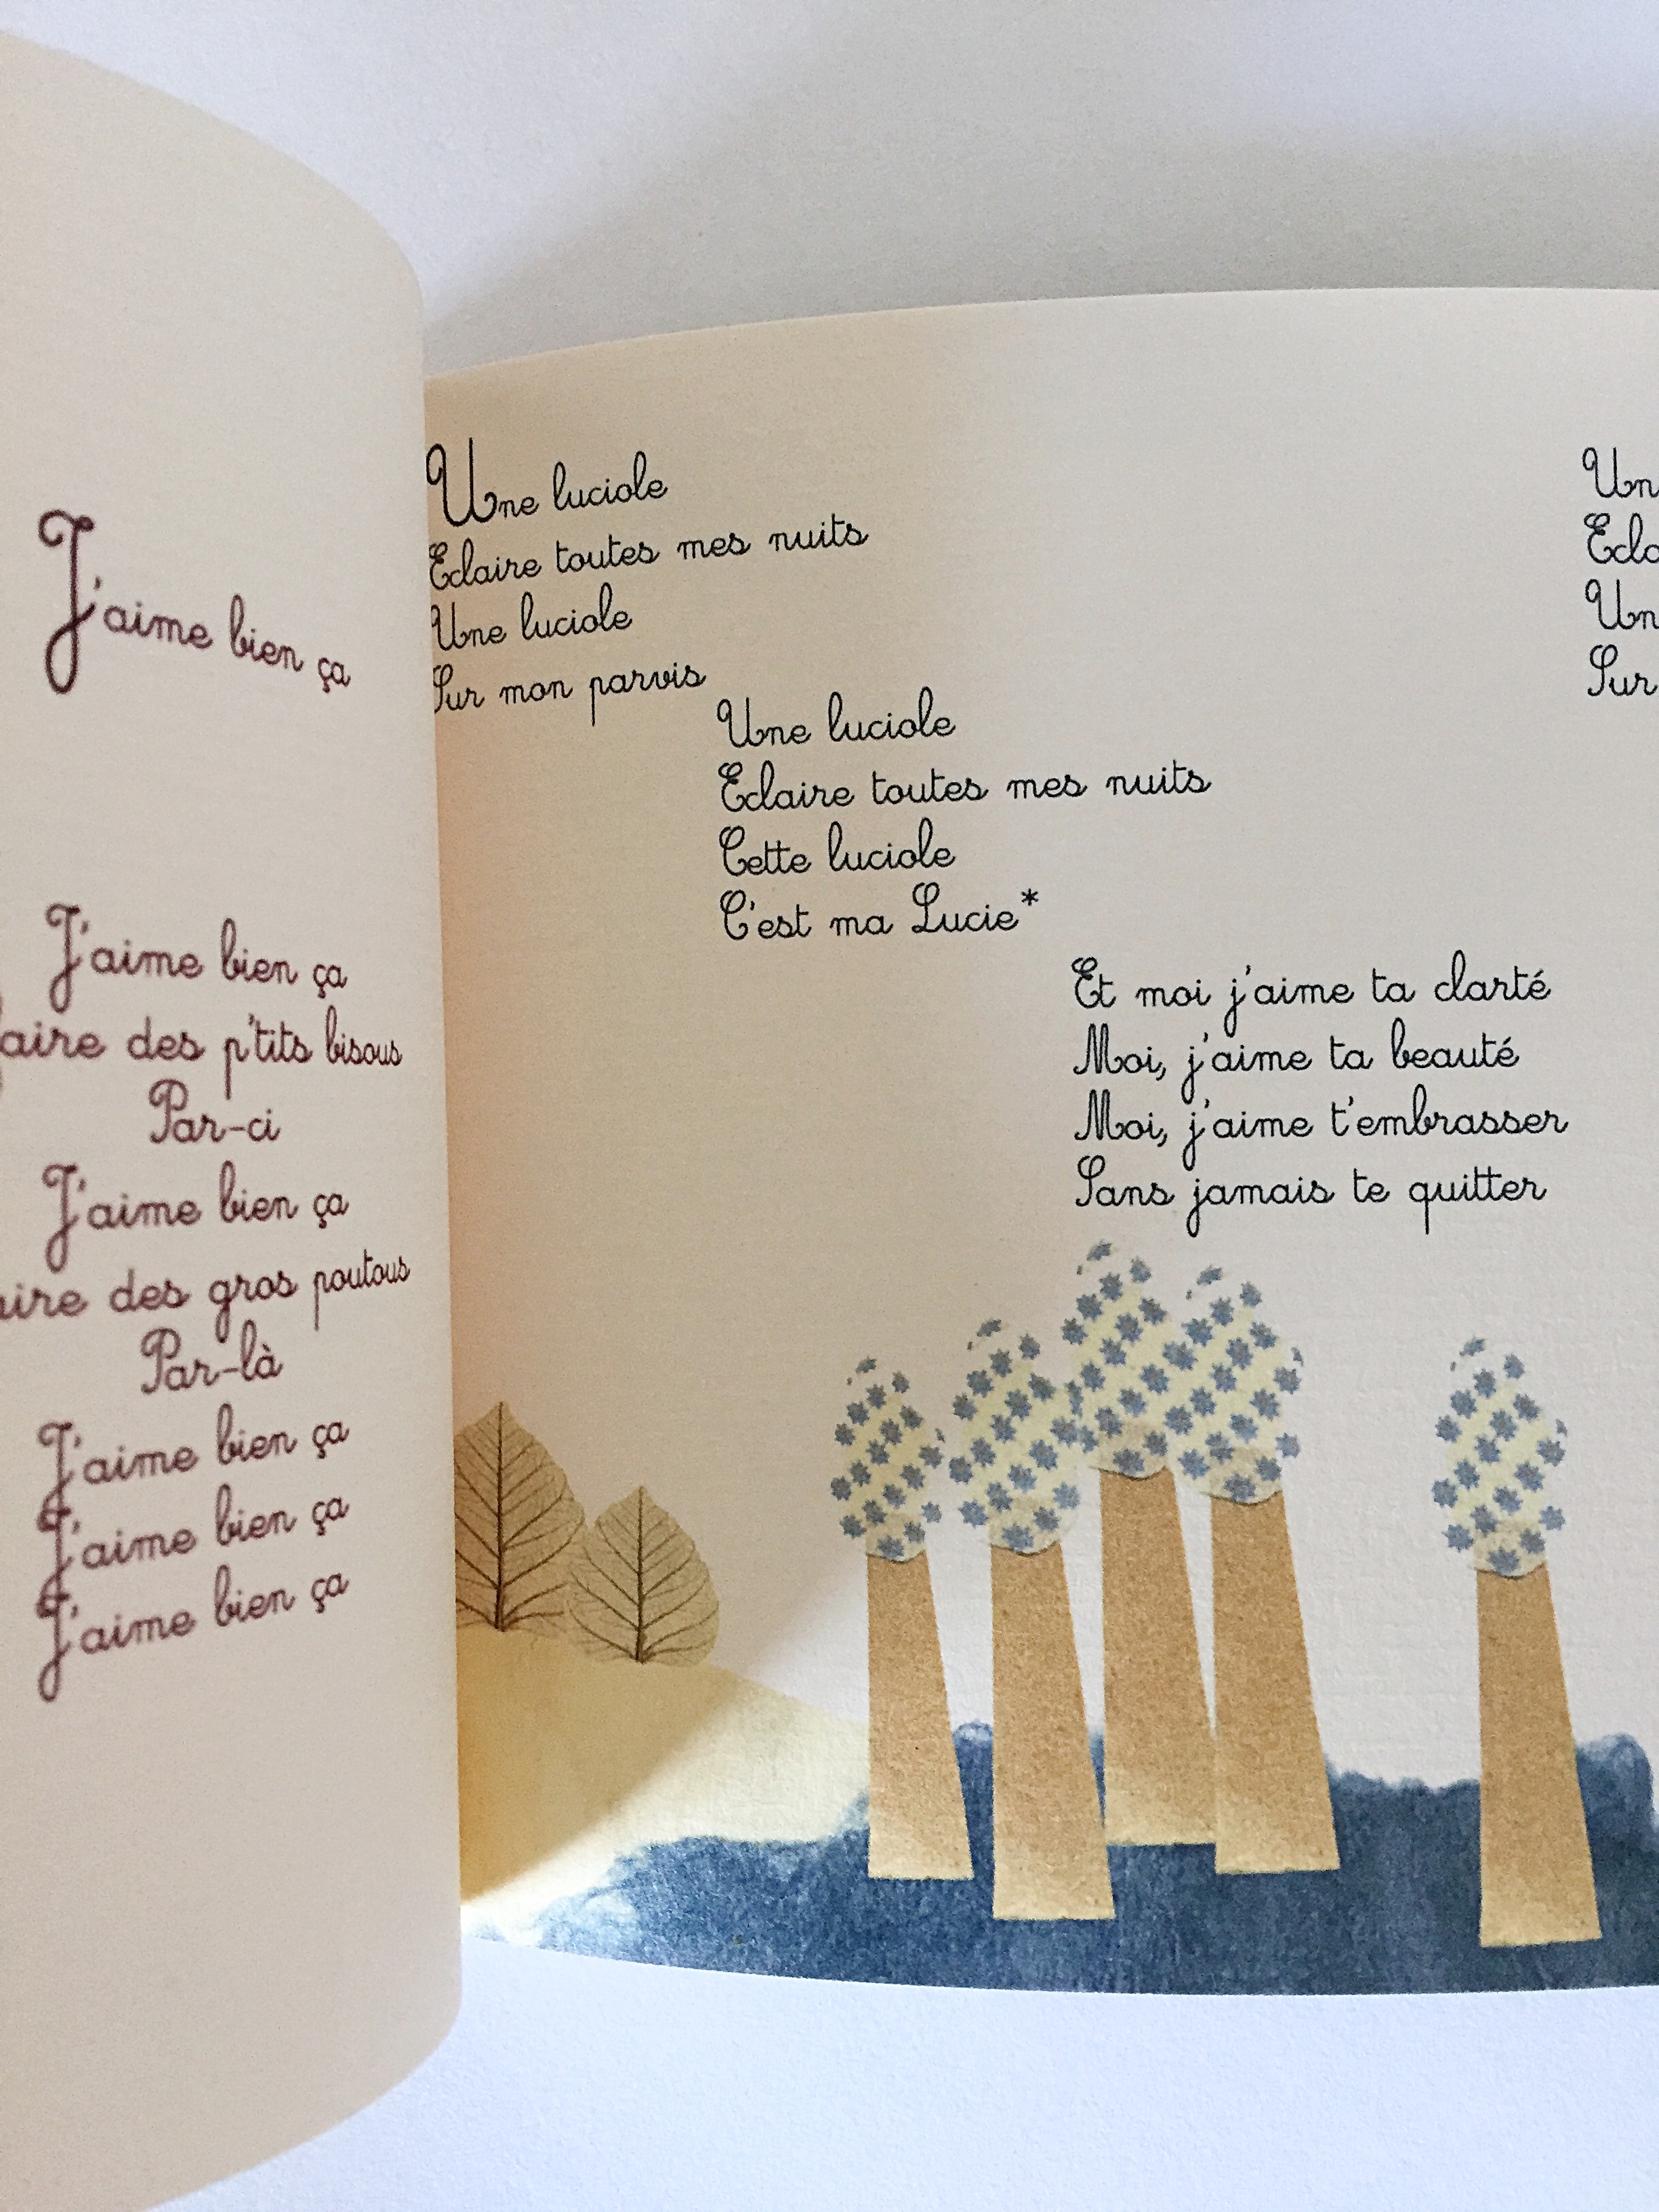 J'aime bien ça
J'aime bien ça
faire des p'tits bisous
Par-ci
J'aime bien ça
des gros poutous
Par-là
J'aime bien ça
J'aime bien ça
J'aime bien ça
Une luciole
Eclaire toutes mes nuits
Une luciole
Sur mon parvis
Une luciole
Eclaire toutes mes nuits
Cette luciole
C'est ma Lucie*
Et moi j'aime ta clarté
Moi, j'aime ta beauté
Moi, j'aime t'embrasser
Sans jamais te quitter
Sur